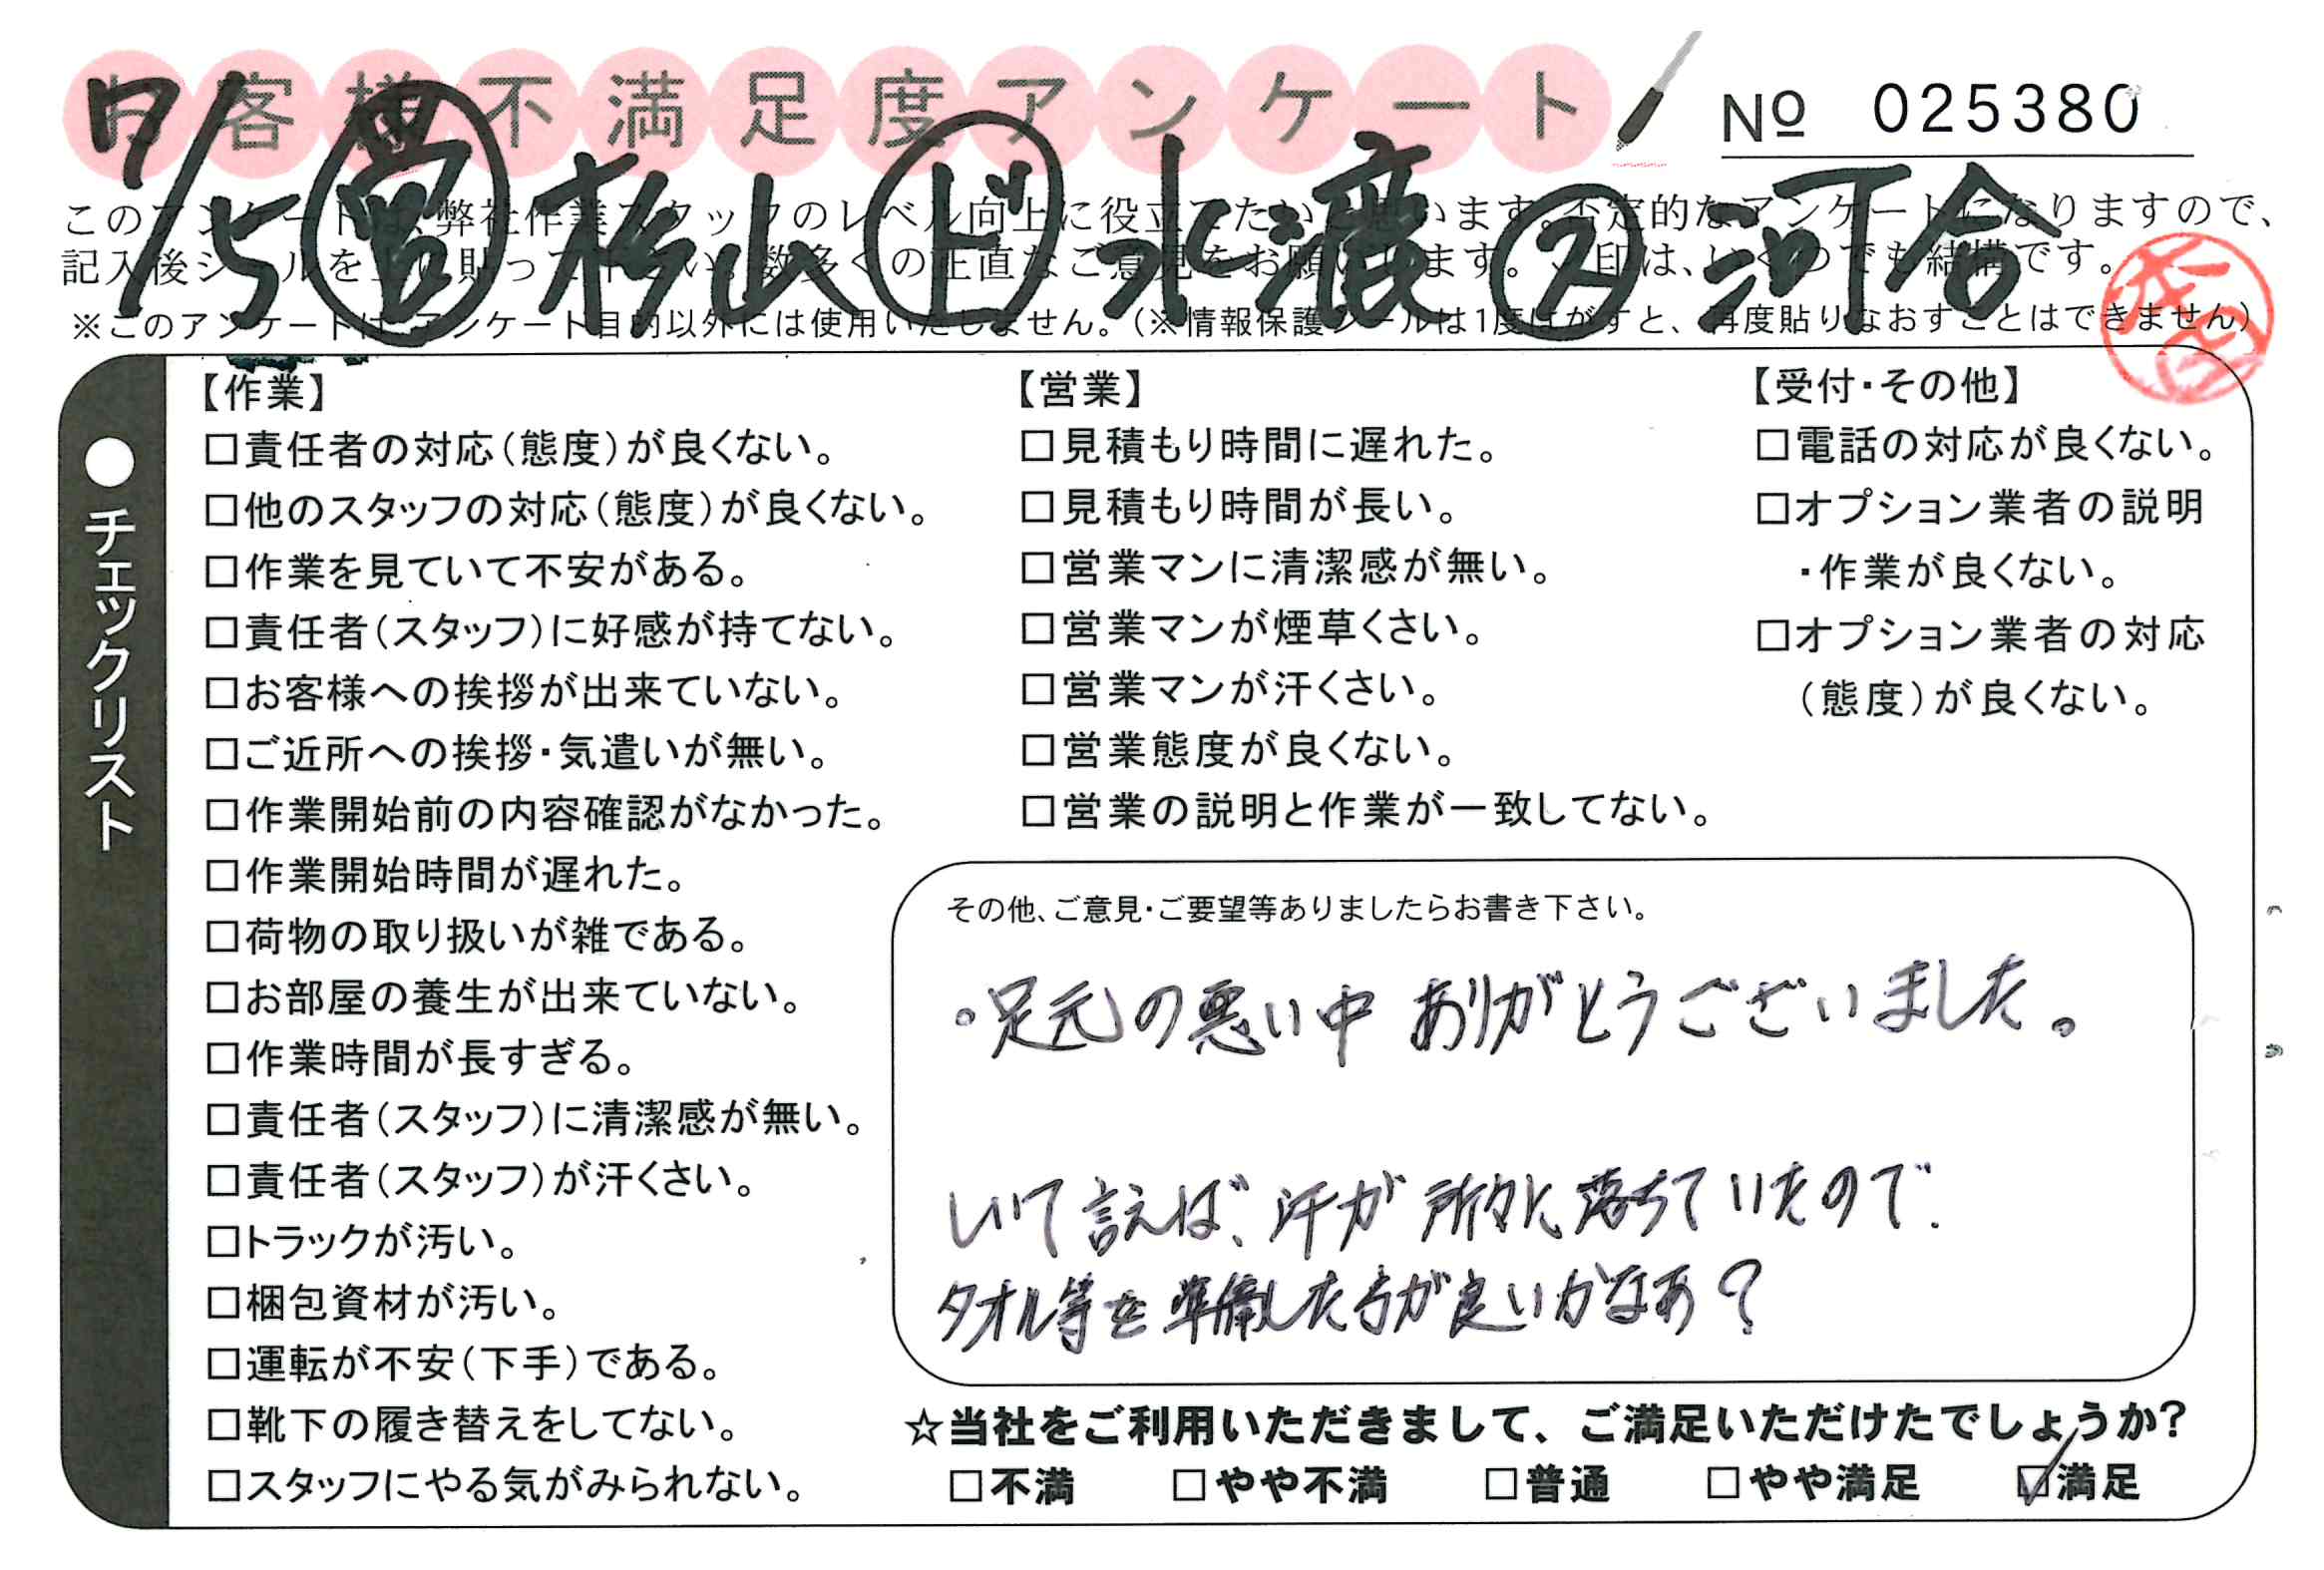 お客様不満足度アンケート
№ 025380
7/5 営 杉山 ド 水漉 ス 河合
このアンケートは、弊社作業スタッフのレベル向上に役立てたいと思います。不定的なアンケートになりますので、
記入後シールを上に貼って下さい。数多くの正直なご意見をお願いします。✓印は、いくつでも結構です。
※このアンケートは、アンケート目的以外には使用いたしません。（※情報保護シールは1度はがすと、再度貼りなおすことはできません）
●チェックリスト
【作業】
□責任者の対応（態度）が良くない。
□他のスタッフの対応（態度）が良くない。
□作業を見ていて不安がある。
□責任者（スタッフ）に好感が持てない。
□お客様への挨拶が出来ていない。
□ご近所への挨拶・気遣いが無い。
□作業開始前の内容確認がなかった。
□作業開始時間が遅れた。
□荷物の取り扱いが雑である。
□お部屋の養生が出来ていない。
□作業時間が長すぎる。
□責任者（スタッフ）に清潔感が無い。
□責任者（スタッフ）が汗くさい。
□トラックが汚い。
□梱包資材が汚い。
□運転が不安（下手）である。
□靴下の履き替えをしてない。
□スタッフにやる気がみられない。
【営業】
□見積もり時間に遅れた。
□見積もり時間が長い。
□営業マンに清潔感が無い。
□営業マンが煙草くさい。
□営業マンが汗くさい。
□営業態度が良くない。
□営業の説明と作業が一致してない。
【受付・その他】
□電話の対応が良くない。
□オプション業者の説明
・作業が良くない。
□オプション業者の対応
（態度）が良くない。
その他、ご意見・ご要望等ありましたらお書き下さい。
。足元の悪い中 ありがとうございました。
しいて言えば、汗が所々に落ちていたので、
タオル等を準備した方が良いかなぁ？
☆当社をご利用いただきまして、ご満足いただけたでしょうか？
□不満 □やや不満 □普通 □やや満足 ☑満足